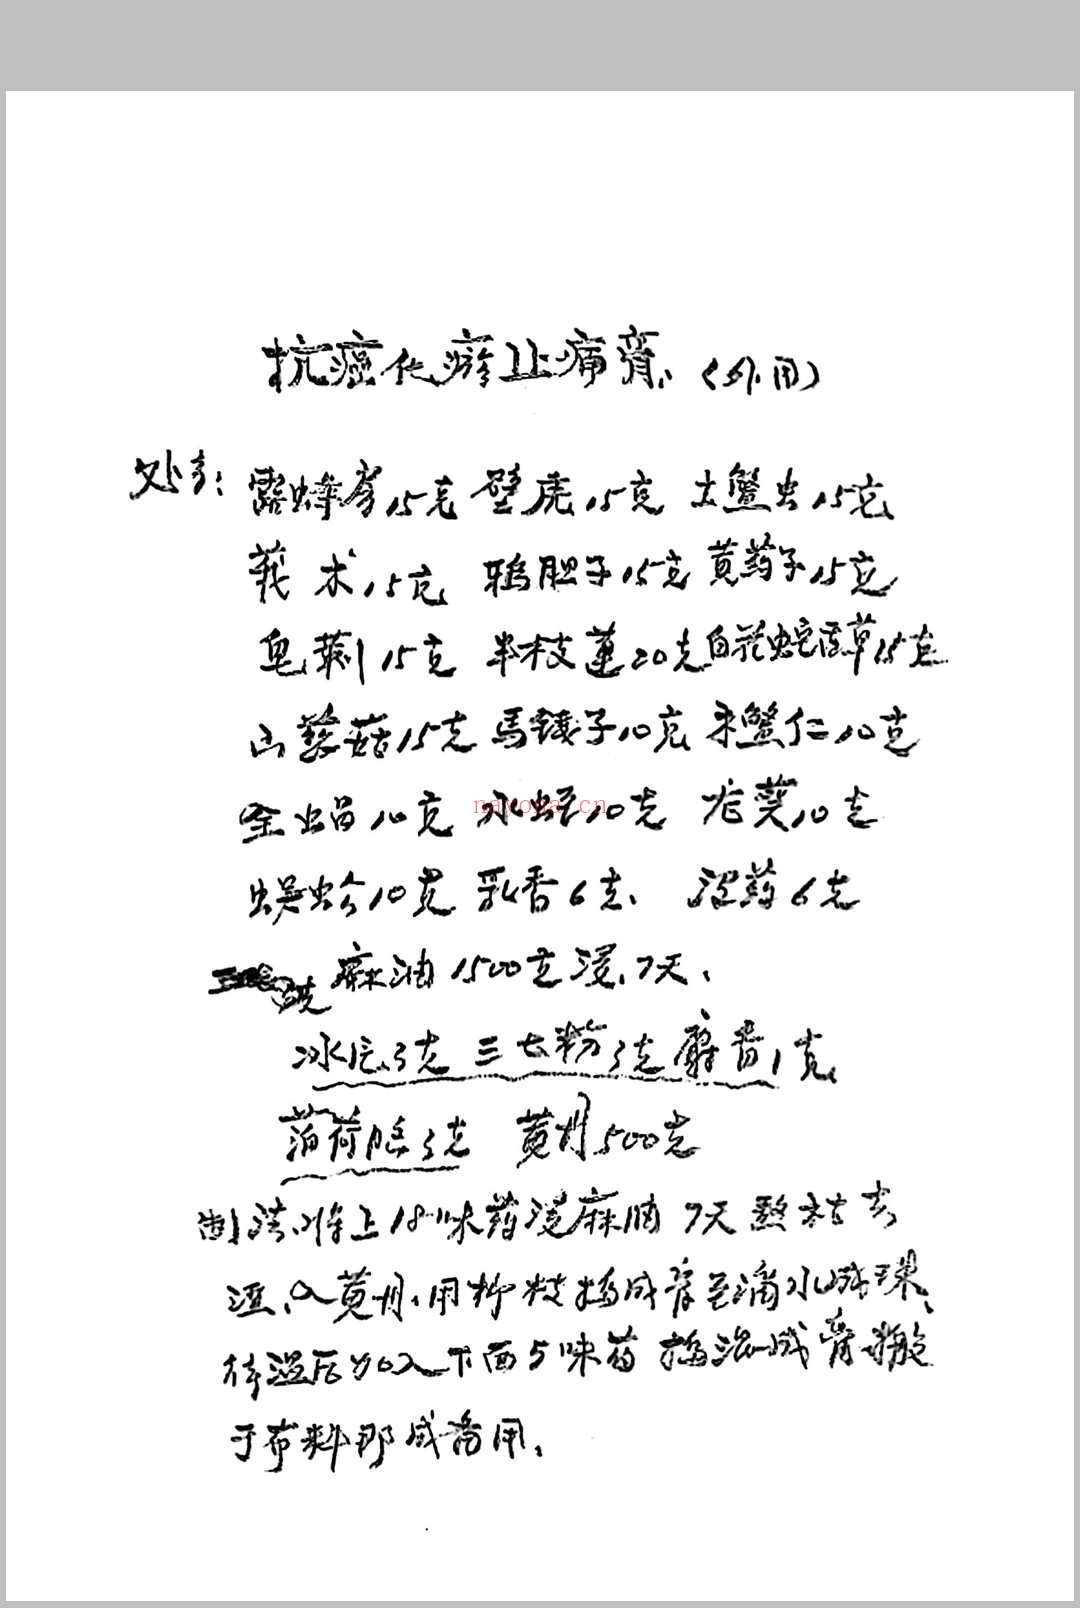 抗癌化瘀止痛膏（外用）
处方：露蜂房15克 壁虎15克 土鳖虫15克
莪术15克 鸦胆子15克 黄药子15克
皂刺15克 半枝莲20克 白花蛇舌草15克
山慈菇15克 马钱子10克 木鳖仁10克
全虫10克 水蛭10克 龙葵10克
nayona.cn
蜈蚣10克 乳香6克、 没药6克
麻油1500克浸7天、
冰片3克 三七粉3克 麝香1克
薄荷脑3克 黄丹500克
制法、将上18味药浸麻油7天熬枯去
渣、入黄丹、用柳枝搅成膏至滴水成珠、
待温后加入下面5味药 搅混成膏摊
于布料即成备用、